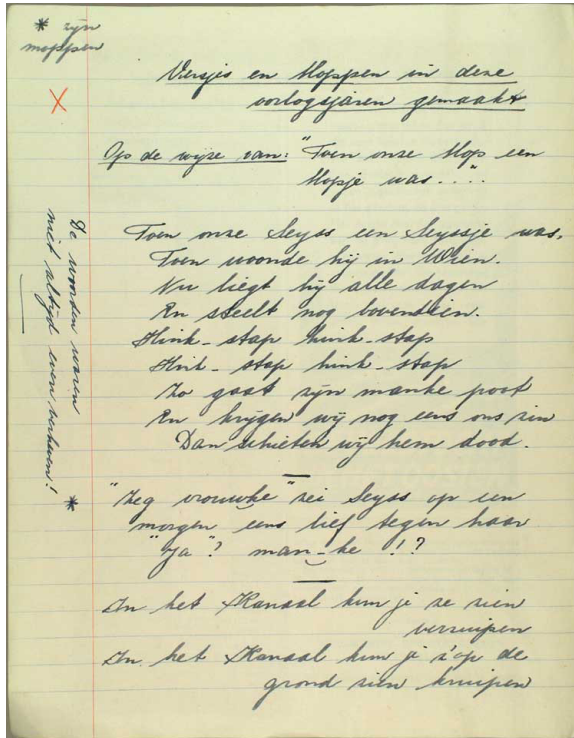 * zijn
moppen
Versjes en Moppen in deze
oorlogsjaren gemaakt
Op de wijze van: "Toen onze Mop een
Mopje was...."
Toen onze Seyss een Seyssje was,
Toen woonde hij in Wien.
Nu liegt hij alle dagen
En steelt nog bovendien.
Hink-stap hink-stap
Hink-stap hink-stap
Zo gaat zijn manke poot
En krijgen wij nog eens ons zin
Dan schieten wij hem dood.
"Zeg vrouwke" zei Seyss op een
morgen eens lief tegen haar
"Ja"? man-ke !?
In het Kanaal kun je ze zien
verzuipen
In het Kanaal kun je z'op de
grond zien kruipen
De woorden waren
niet altijd even verheven! *